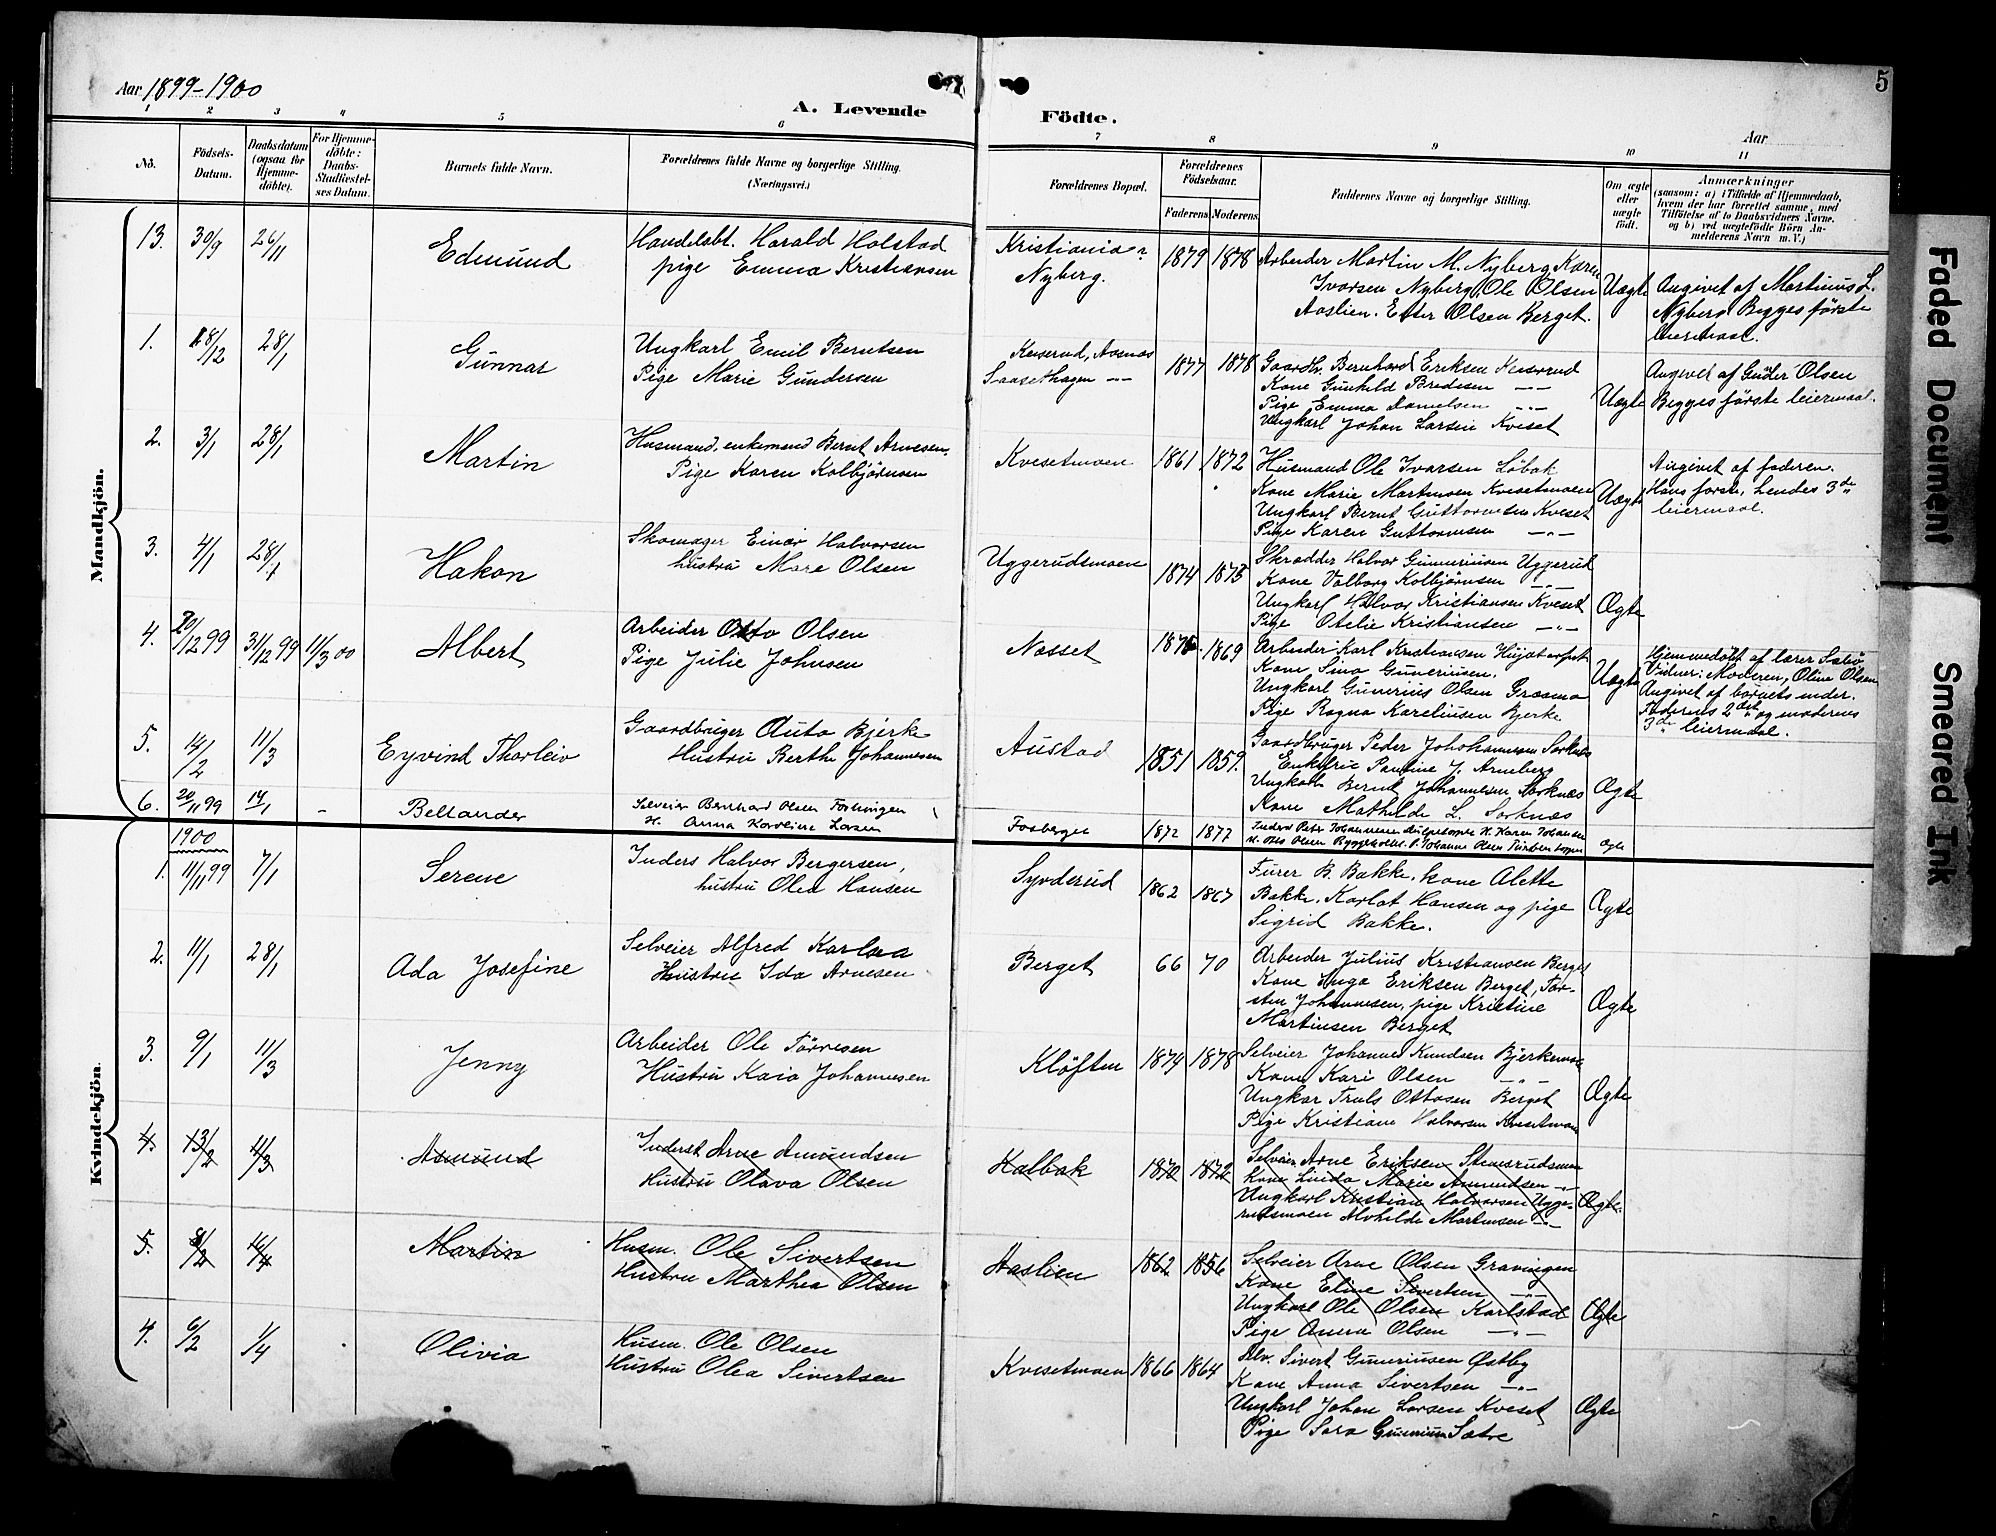 Aar 1899-1900
A. Levende Födte.
Aar
5
1 2 3 4 5 6 7 8 9 10 11
No.
Födsels-Datum.
Daabsdatum (ogsaa for Hjemmedöbte).
For Hjemmedöbte: Daabs-Stadfæstelses Datum.
Barnets fulde Navn.
Forældrenes fulde Navne og borgerlige Stilling. (Næringsvei.)
Forældrenes Bopæl.
Forældrenes Födselsaar.
Faderens Moderens
Faddernes Navne og borgerlige Stilling.
Om ægte eller uægte födt.
Anmærkninger
(saasom: a) i Tilfælde af Hjemmedaab,
hvem der har forrettet samme, med
Tilföielse af to Daabsvidners Navne.
og b) ved uægtefödte Börn Anmelderens Navn m. V.)
Mandkjön.
13. 30/9 26/11 Edmund
Handelsbt. Harald Holstad
pige Emma Kristiansen
Kristiania
Nyberg.
1879 1878
Arbeider Martin M. Nyberg, Karen
Ivarsen Nyberg, Ole Olsen
Aaslien. Ester Olsen Berget.
Uægte
Angivet af Martinius L.
Nyberg. Begges förste
leiermaal.
1. 28/12 28/1 Gunnar
Ungkarl Emil Berntsen
Pige Marie Gundersen
Keiserud, Aasnæs
Saasethagen -"-
1877 1878
Gaardbr. Bernhard Eriksen Keiserud
Kone Gunhild Bredesen -"-
Pige Emma Danielsen -"-
Ungkarl Johan Larsen Kveset
Uægte
Angivet af Guder Olsen
Begges förste leiermaal.
2. 3/1 28/1 Martin
Husmand, enkemand Bernt Arnesen.
Pige Karen Kolbjörnsen
Kvesetmoen
1861 1872
Husmand Ole Ivarsen Löbak
Kone Marie Martinsen Kvesetmoen
Ungkarl Bernt Guttormsen Kveset
Pige Karen Guttormsen -"-
Uægte
Angivet af faderen.
Hans förste, hendes 3de
leiermaal.
3. 4/1 28/1 Hakon
Skomager Einar Halvorsen
hustru Mare Olsen
Uggerudsmoen
1874 1875
Skrædder Halvor Gunneriusen Uggerud
Kone Valborg Kolbjörnsen -"-
Ungkarl Halvor Kristiansen Kveset
Pige Otelie Kristiansen -"-
Ægte
4. 20/12 99 31/12 99 11/3 00 Albert
Arbeider Otto Olsen
Pige Julie Johnsen
Næsset
1869
Arbeider Karl Kristiansen
Kone Sina Guneriusen.
Ungkarl Gunerius Olsen Græsmo
Pige Ragna Kareliusen Bjerke
Uægte
Hjemmedöbt af lærer
Vidner: Moderen, Oline Olsen
Angivet af barnets moder.
Faderens 2det og moderens
3de leiermaal.
5. 14/2 11/3 Eyvind Thorleiv
Gaardbruger Auto Bjerke
Hustru Berthe Johannesen
Austad
1851 1859.
Gaardbruger Peder Johannesen Sorknæs
Enkefrue Pauline J. Arneberg
Ungkarl Bernt Johannesen Sorknæs
Kone Mathilde L. Sorknæs
Ægte
6. 20/11 99 14/1 - Bellander
Selveier Bernhard Olsen
H. Anna Karoline Larsen
Fosberget
1872 1877
Inders Peter Johannesen H. Karen Johansen
Ægte
Kvindekjön.
1900
1. 11/11 99 7/1 Serene
Inders Halvor Bergersen,
hustru Olea Hansen
Synderud
1862 1867
Furer B. Bakke, kone Alette
Bakke, Karlot Hansen og pige
Sigrid Bakke.
Ægte
2. 11/1 28/1 Ada Josefine
Selveier Alfred Karlsen
Hustru Ida Arnesen
Berget
66 70
Arbeider Julius Kristiansen Berget
Kone Inga Eriksen Berget, Tor-
sten Johannesen, pige Kristine
Martinsen Berget
Ægte
3. 9/1 11/3 Jenny
Arbeider Ole Törresen
Hustru Kaia Johannesen
Klöften
1874 1878
Selveier Johannes Knudsen Bjerkemoe
Kone Kari Olsen -"-
Ungkar Truls Ottosen Berget
Pige Kristiane Halvorsen Kvesetmoen
Ægte
4. 13/2 11/3 Amund
Inderst Arne Amundsen
Hustru Olava Olsen
Kalbak
1870 1872
Selveier Arne Eriksen Stensrudsmoen
Kone Linda Marie Amundsen -"-
Ungkarl Kristian Halvorsen Ugge-
rudsmoen Alvhilde Martinsen -"-
Ægte
5. 8/2 16/4 Martin
Husm. Ole Sivertsen
Hustru Marthea Olsen
Aaslien
1862 1856
Selveier Arne Olsen Gravingen
Kone Eline Sivertsen -"-
Ungkarl Ole Olsen Karlstad
Pige Anna Olsen -"-
Ægte
4. 6/2 1/4 Olivia
Husm. Ole Olsen
Hustru Olea Sivertsen
Kvesetmoen
1866 1864
Selv. Sivert Guneriusen Østby
Kone Anna Sivertsen -"-
Ungkarl Johan Larsen Kveset
Pige Sara Gunerius Sætre
Ægte
Faded Document
Smeared Ink